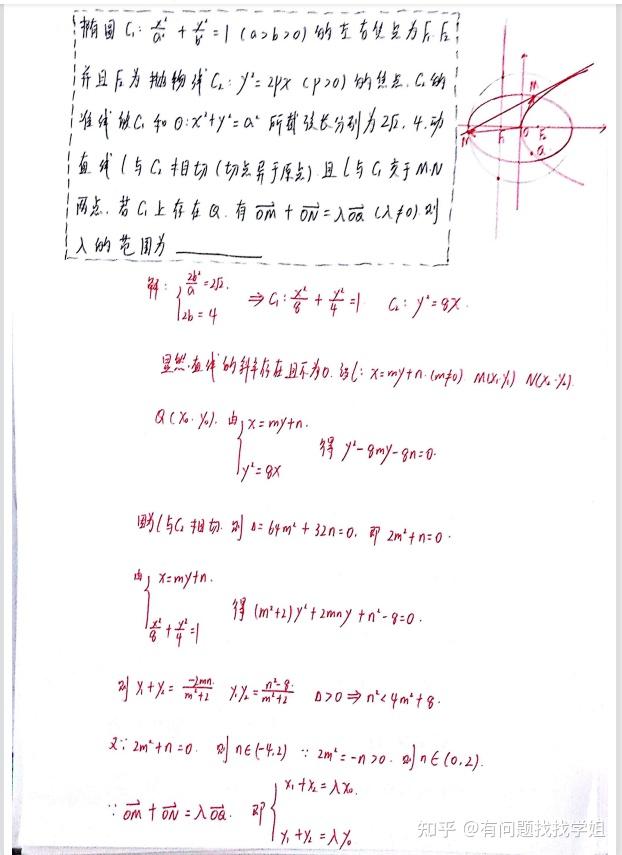 椭圆C₁: x²/a² + y²/b² = 1 (a>b>0) 的左右焦点为F₁ F₂
并且F₂为抛物线C₂: y²=2px (p>0) 的焦点. C₂的
准线被C₁和O: x²+y²=a² 所截弦长分别为2√2, 4. 动
直线l与C₂相切 (切点异于原点) 且l与C₁交于M.N
两点. 若C₁上存在Q. 有 OM + ON = λOQ (λ≠0) 则
λ的范围为
M
N
F₁
O
F₂
Q
解: { 2b²/a = 2√2. 2b = 4 ⇒ C₁: x²/8 + y²/4 = 1 C₂: y²=8x.
显然.直线的斜率存在且不为0. 设l: x=my+n. (m≠0) M(x₁.y₁) N(x₂.y₂).
Q(x₀.y₀). 由 { x=my+n. y²=8x 得 y²-8my-8n=0.
因为l与C₂相切. 则 Δ=64m²+32n=0. 即 2m²+n=0.
由 { x=my+n. x²/8 + y²/4 = 1 得 (m²+2)y²+2mny+n²-8=0.
则 y₁+y₂ = -2mn/m²+2 y₁y₂ = n²-8/m²+2 Δ>0 ⇒ n²<4m²+8.
又∵ 2m²+n=0. 则 n∈(-4,2) ∵ 2m²=-n>0. 则 n∈(0,2).
∵ OM + ON = λOQ. 即 { x₁+x₂=λx₀. y₁+y₂=λy₀
知乎 @有问题找找学姐